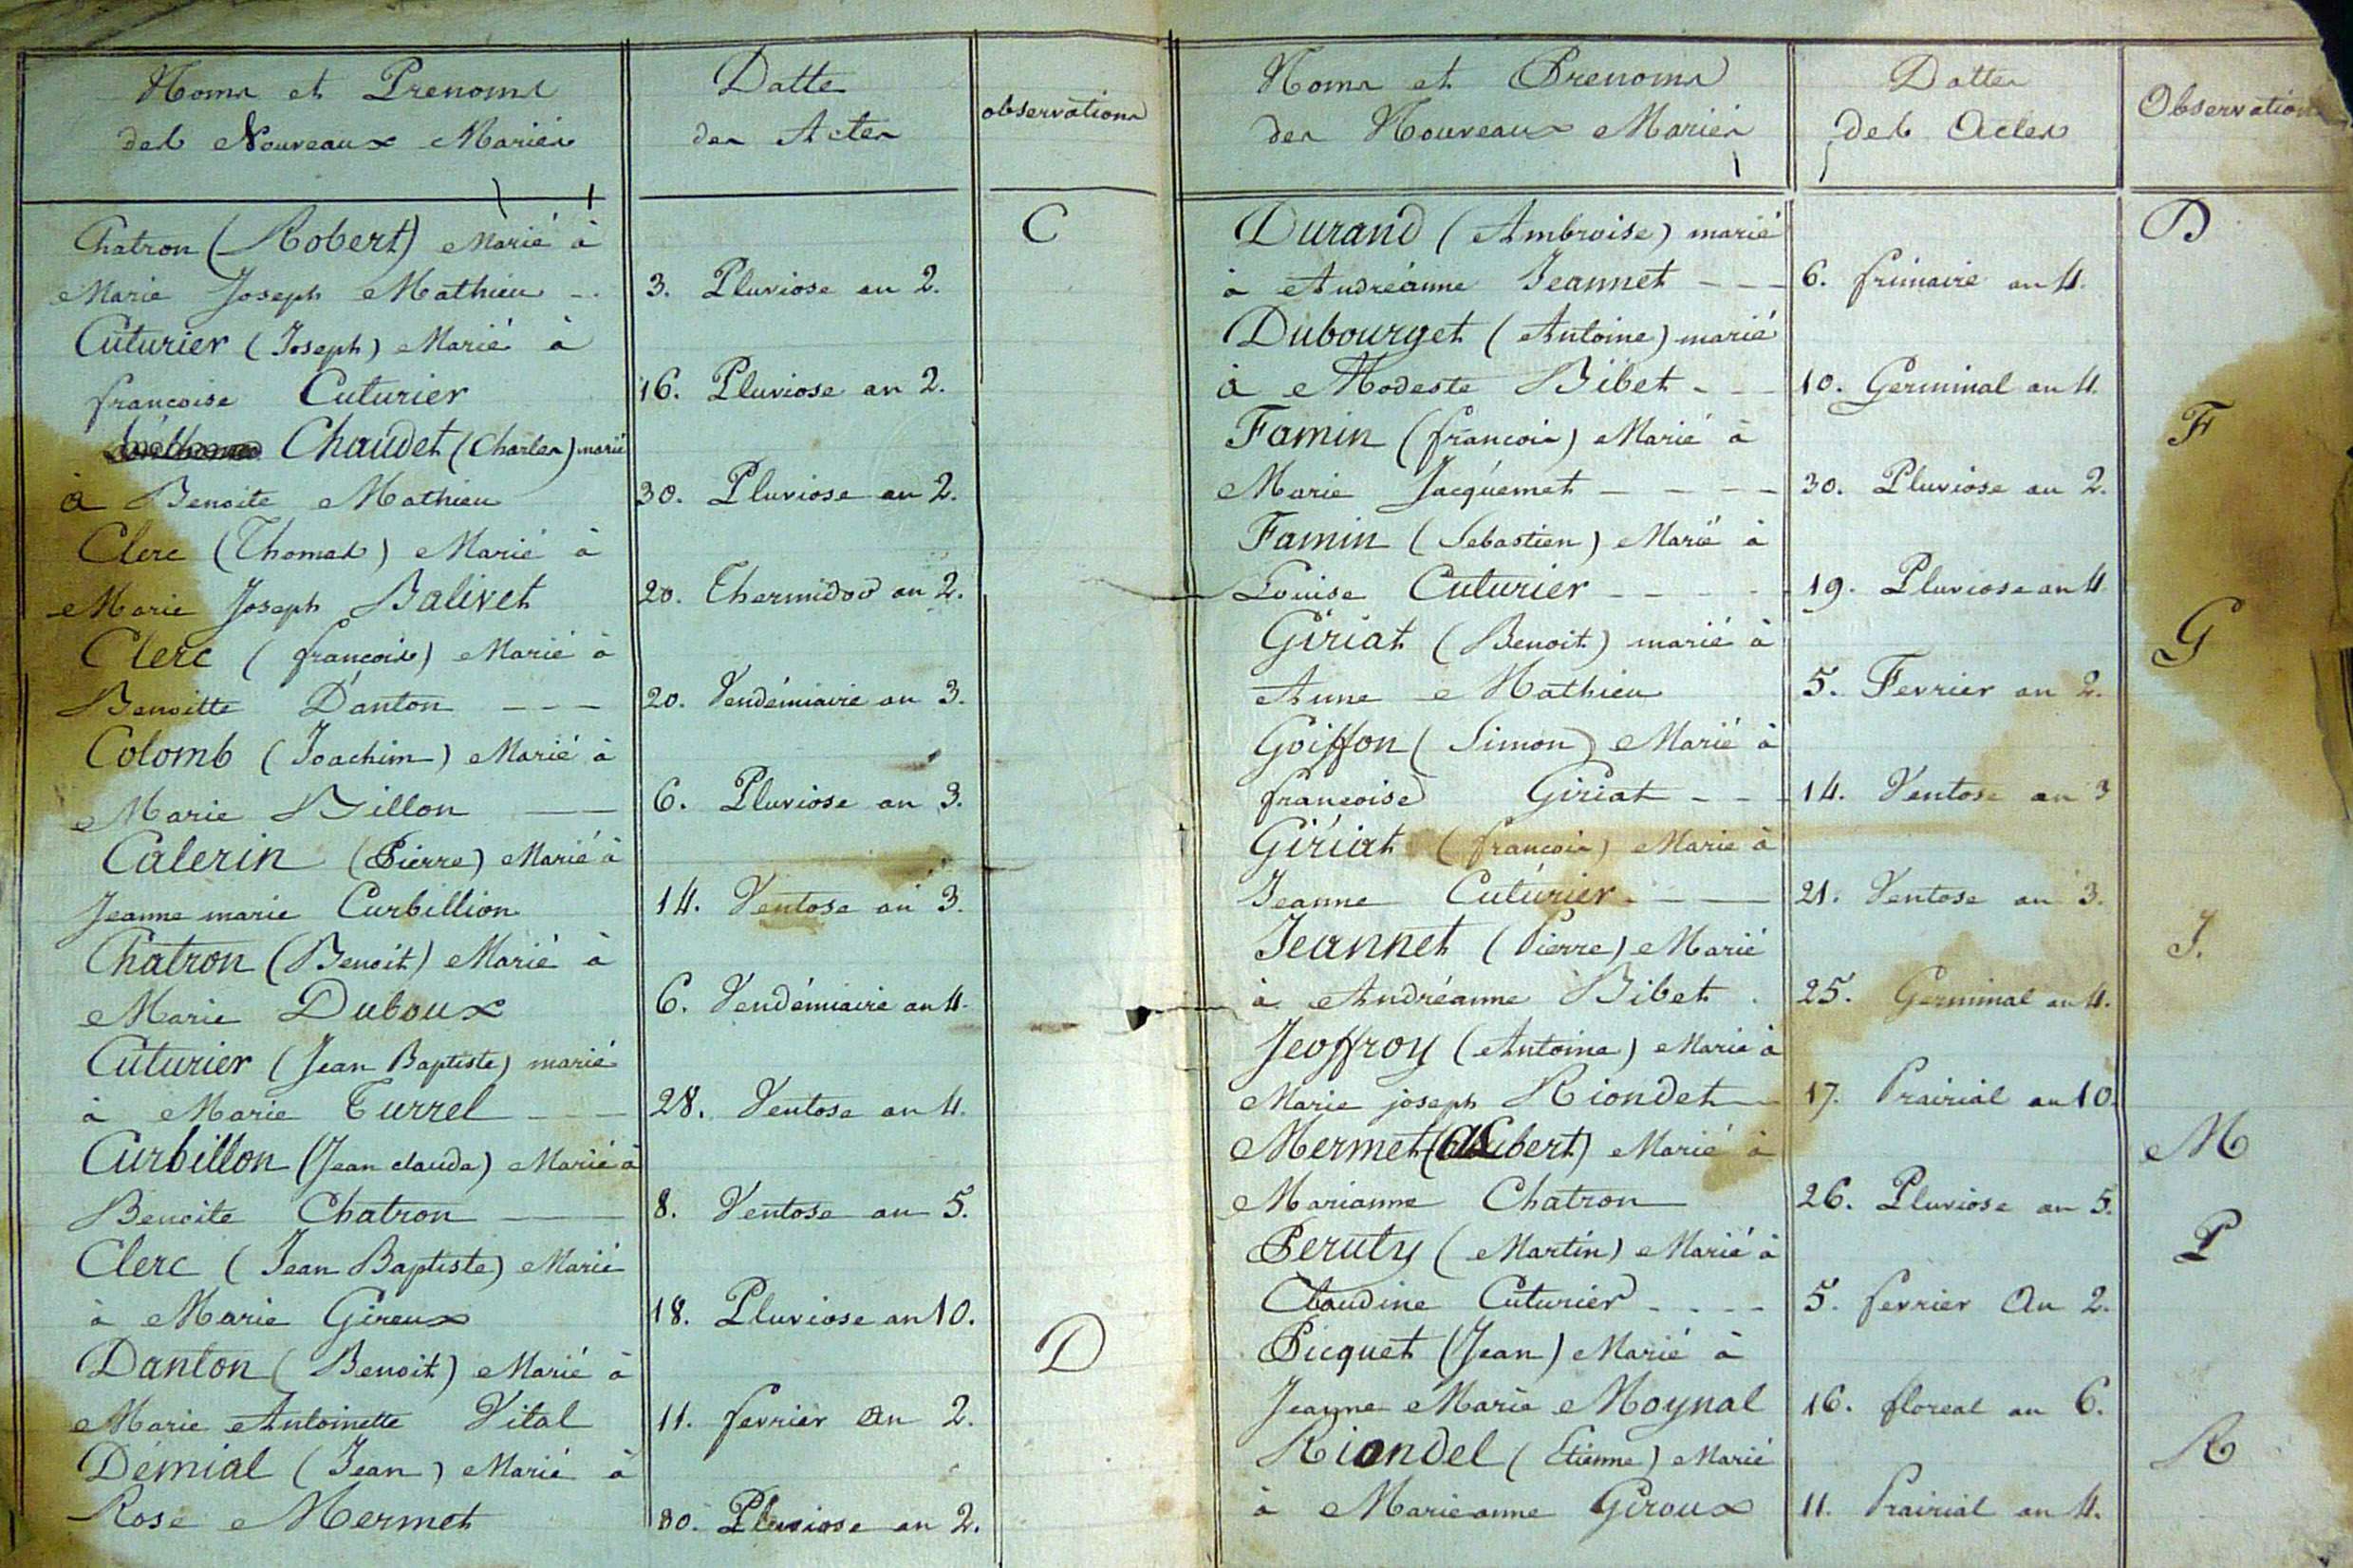 Noms et Prenoms
des Nouveaux Mariés
Datte
des Actes
observations
Chatron (Robert) Marié à
C
Marie Joseph Mathieu - . 3. Pluviose an 2.
Cuturier (Joseph) Marié à
francoise Cuturier 16. Pluviose an 2.
Chaudet (Charles) marié
à Benoite Mathieu 30. Pluviose an 2.
Clerc (Thomas) Marié à
Marie Joseph Balivet 20. Thermidor an 2.
Clerc (francois) Marié à
Benoitte Danton - - - 20. Vendémiaire an 3.
Colomb (Joachim) Marié à
Marie Billon — — 6. Pluviose an 3.
Calerin (Pierre) Marié à
Jeanne marie Curbillion 14. Ventose an 3.
Chatron (Benoit) Marié à
Marie Duboux 6. Vendémiaire an 4.
Cuturier (Jean Baptiste) marié
à Marie Turrel - - - 28. Ventose an 4.
Curbillon (Jean claude) Marié à
Benoite Chatron — — 8. Ventose an 5.
Clerc (Jean Baptiste) Marié
à Marie Gireux 18. Pluviose an 10.
Danton (Benoit) Marié à
D
Marie Antoinette Vital 11. fevrier An 2.
Démial (Jean) Marié à
Rose Mermet 30. Pluviose an 2.
Noms et Prenoms
des Nouveaux Mariés
Dattes
des Actes
Observations
Durand (Ambroise) marié
D
à Andréanne Jeannet - - - 6. frimaire an 4.
Dubourget (Antoine) marié
à Modeste Bibet - - - 10. Germinal an 4.
Famin (francois) Marié à
F
Marie Jacquemet - - - - 30. Pluviose an 2.
Famin (Sebastien) Marié à
Louise Cuturier - - - - - 19. Pluviose an 4
Giriat (Benoit) marié à
G
Anne Mathieu 5. Fevrier an 2.
Goiffon (Simon) Marié à
francoise Giriat - - - 14. Ventose an 3
Giriat (francois) Marié à
Jeanne Cuturier - - — — 21. Ventose an 3.
Jeannet (Pierre) Marié
J.
à Andréanne Bibet . 25. Germinal an 4.
Jeoffroy (Antoine) Marié à
Marie joseph Riondet — 17. Prairial an 10.
Mermet (Claubert) Marié à
M
Marianne Chatron 26. Pluviose an 5.
Peruty (Martin) Marié à
P
Claudine Cuturier - - - - 5. fevrier An 2.
Picquet (Jean) Marié à
Jeanne Marie Moynal 16. floreal an 6.
Riondel (Etienne) Marié
R
à Marieanne Giroux 11. Prairial an 4.